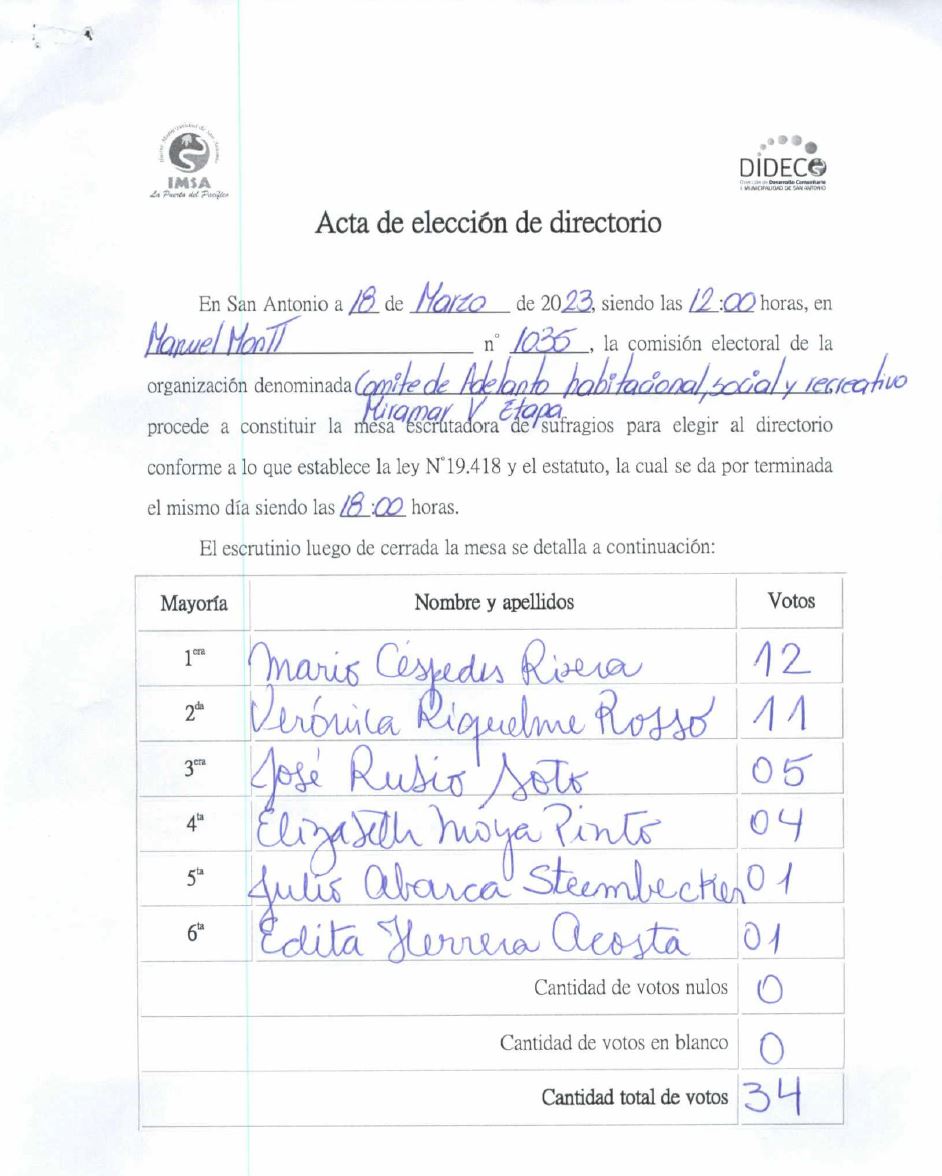 IMSA
La Puerta del Pacífico
DIDECO
Dirección de Desarrollo Comunitario
I. MUNICIPALIDAD DE SAN ANTONIO
Acta de elección de directorio
En San Antonio a 18 de Marzo de 2023, siendo las 12:00 horas, en
Manuel Montt n° 1035, la comisión electoral de la
organización denominada Comite de Adelanto habitacional, social y recreativo
Miramar V Etapa
procede a constituir la mesa escrutadora de sufragios para elegir al directorio
conforme a lo que establece la ley N°19.418 y el estatuto, la cual se da por terminada
el mismo día siendo las 18:00 horas.
El escrutinio luego de cerrada la mesa se detalla a continuación:
Mayoría Nombre y apellidos Votos
1era Mario Céspedes Rivera 12
2da Verónica Riquelme Rosso 11
3era José Rubio Soto 05
4ta Elizabeth Moya Pinto 04
5ta Julio Abarca Steembecker 01
6ta Edita Herrera Acosta 01
Cantidad de votos nulos 0
Cantidad de votos en blanco 0
Cantidad total de votos 34